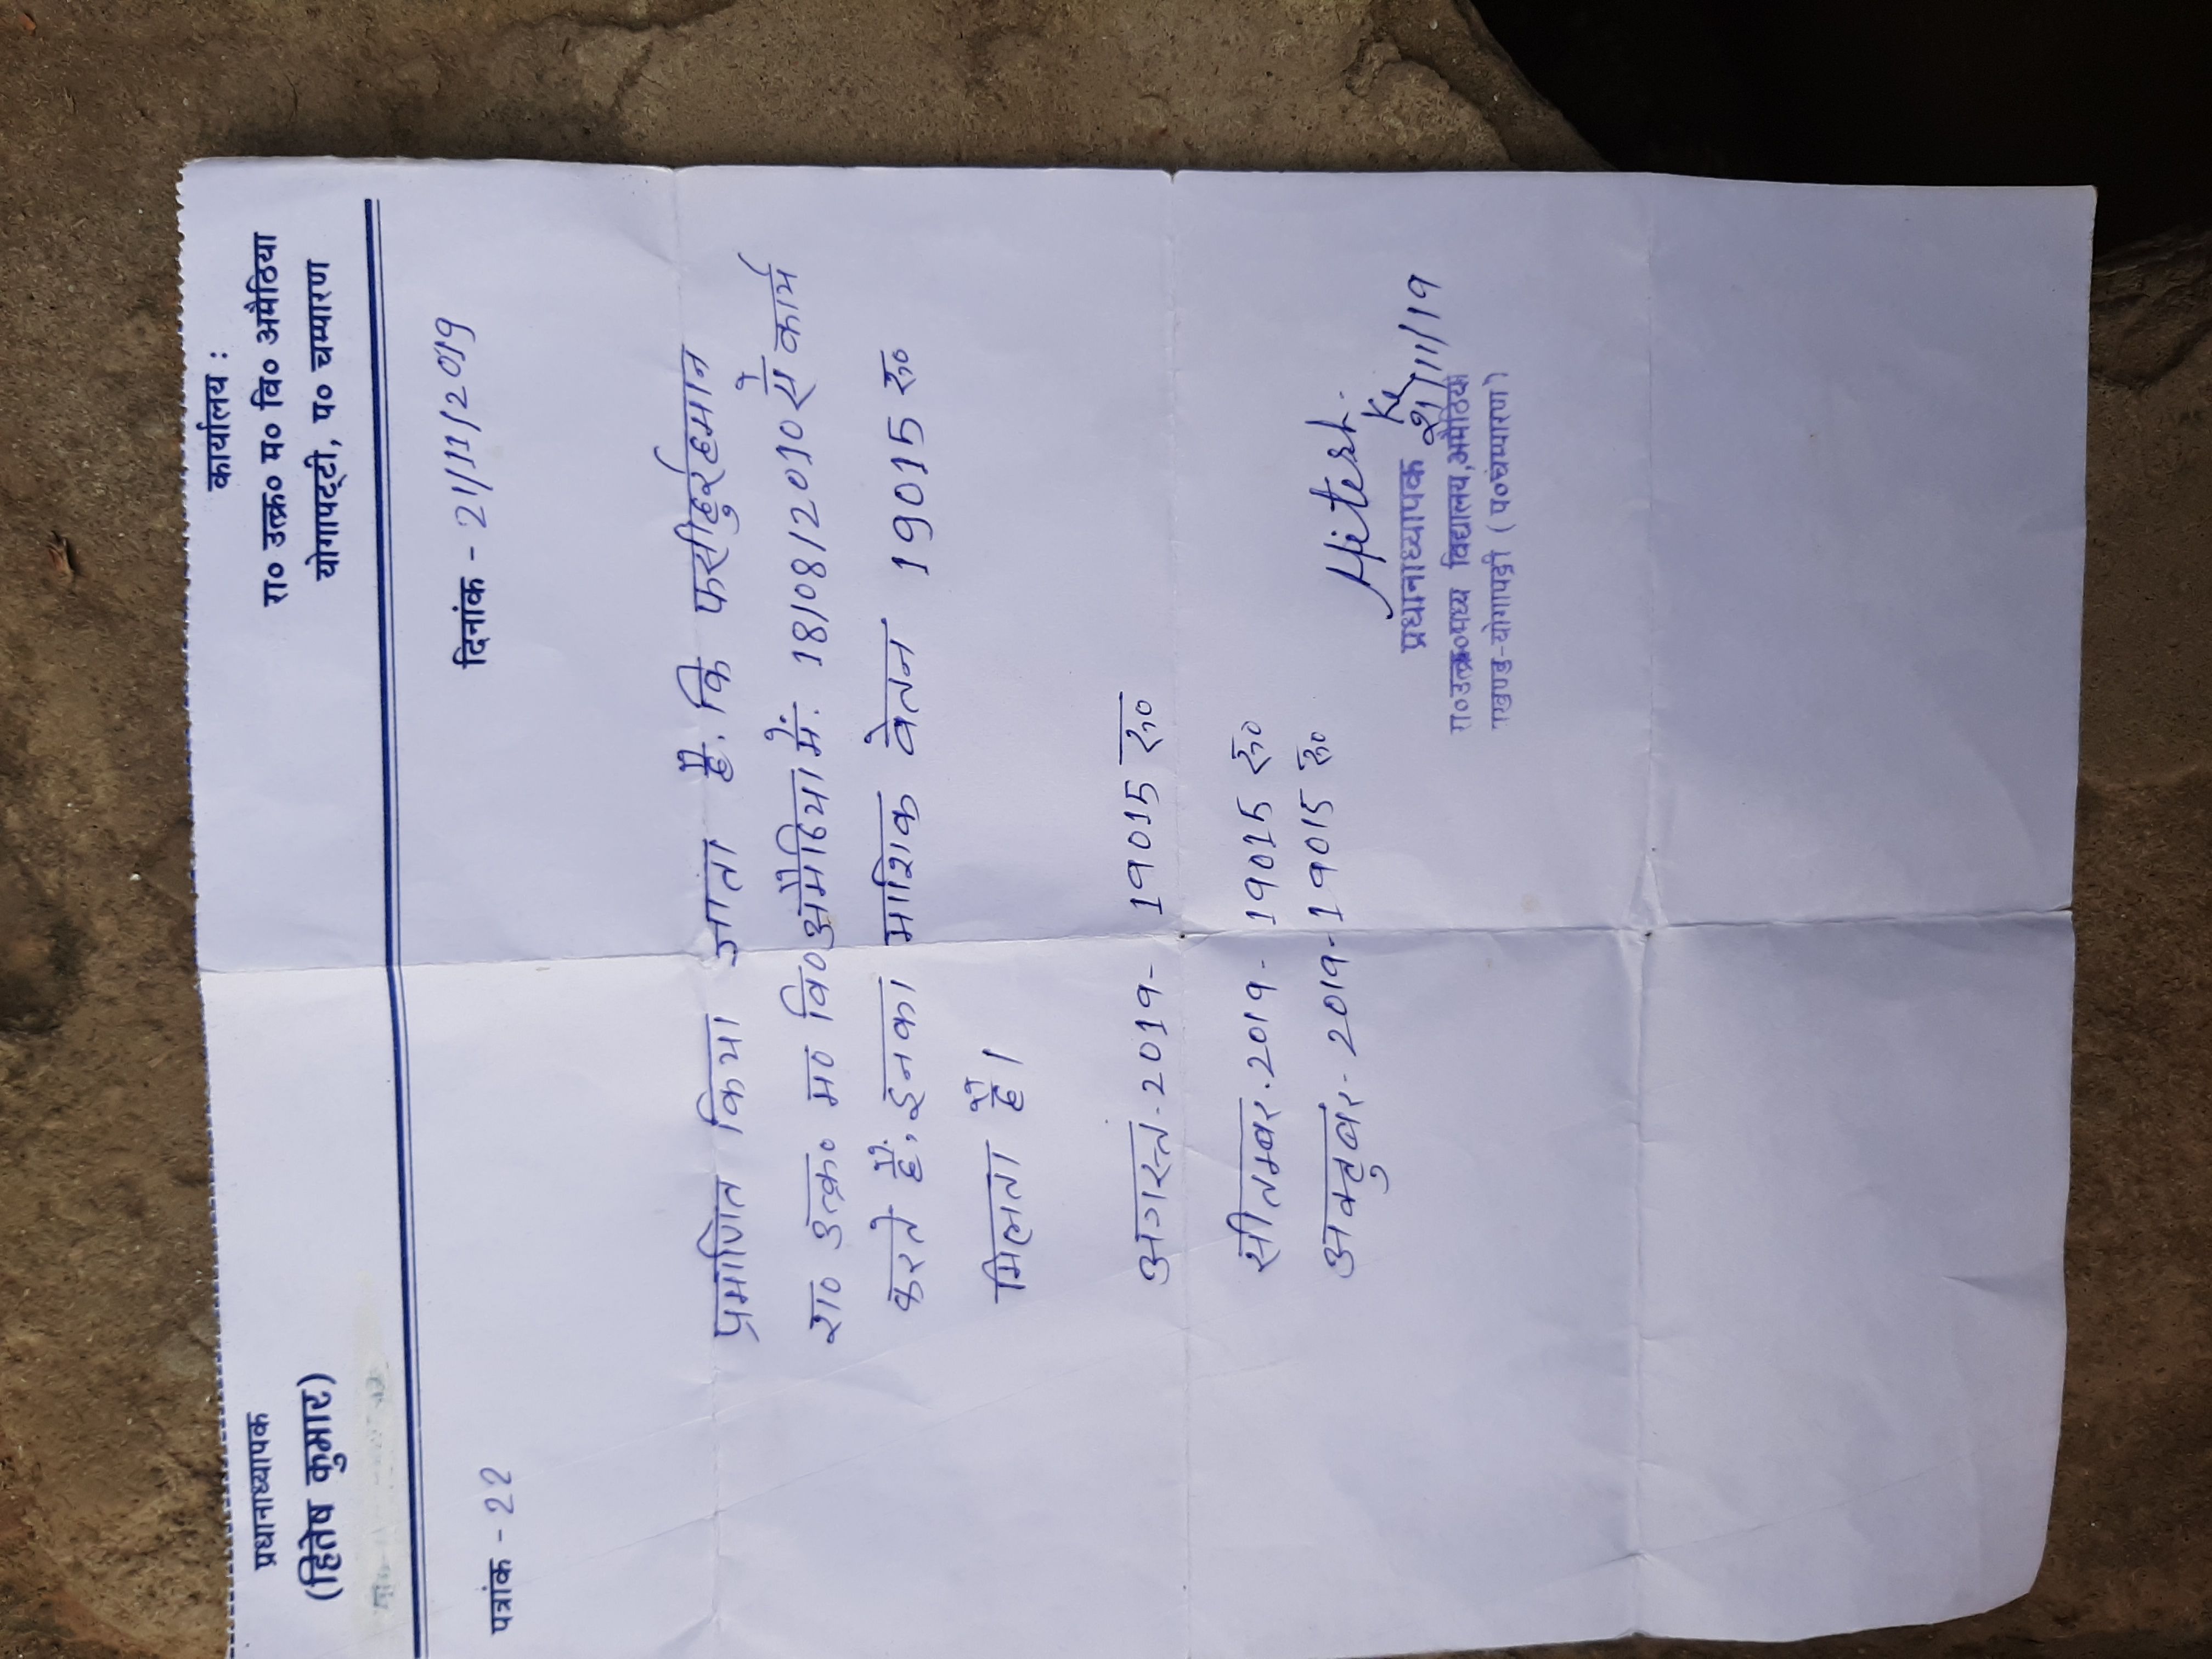 प्रधानाध्यापक
(हितेष कुमार)
कार्यालय :
रा० उत्क्र० म० वि० अमैठिया
योगापट्टी, प० चम्पारण
पत्रांक - 22
दिनांक - 21/11/2019
प्रमाणित किया जाता है. कि फसीहुर्रहमान
रा० उत्क्र० म० वि० अमैठिया में. 18/08/2010 से कार्य
करते हैं, इनका माशिक वेतन 19015 रु०
मिलता है।
अगस्त. 2019- 19015 रु०
सीतम्बर. 2019- 19015 रु०
अक्तुबर. 2019- 19015 रु०
Hitesh Kr
21/11/19
प्रधानाध्यापक
रा०उत्क्र०मध्य विद्यालय,अमैठिया
प्रखण्ड-योगापट्टी (प०चम्पारण)